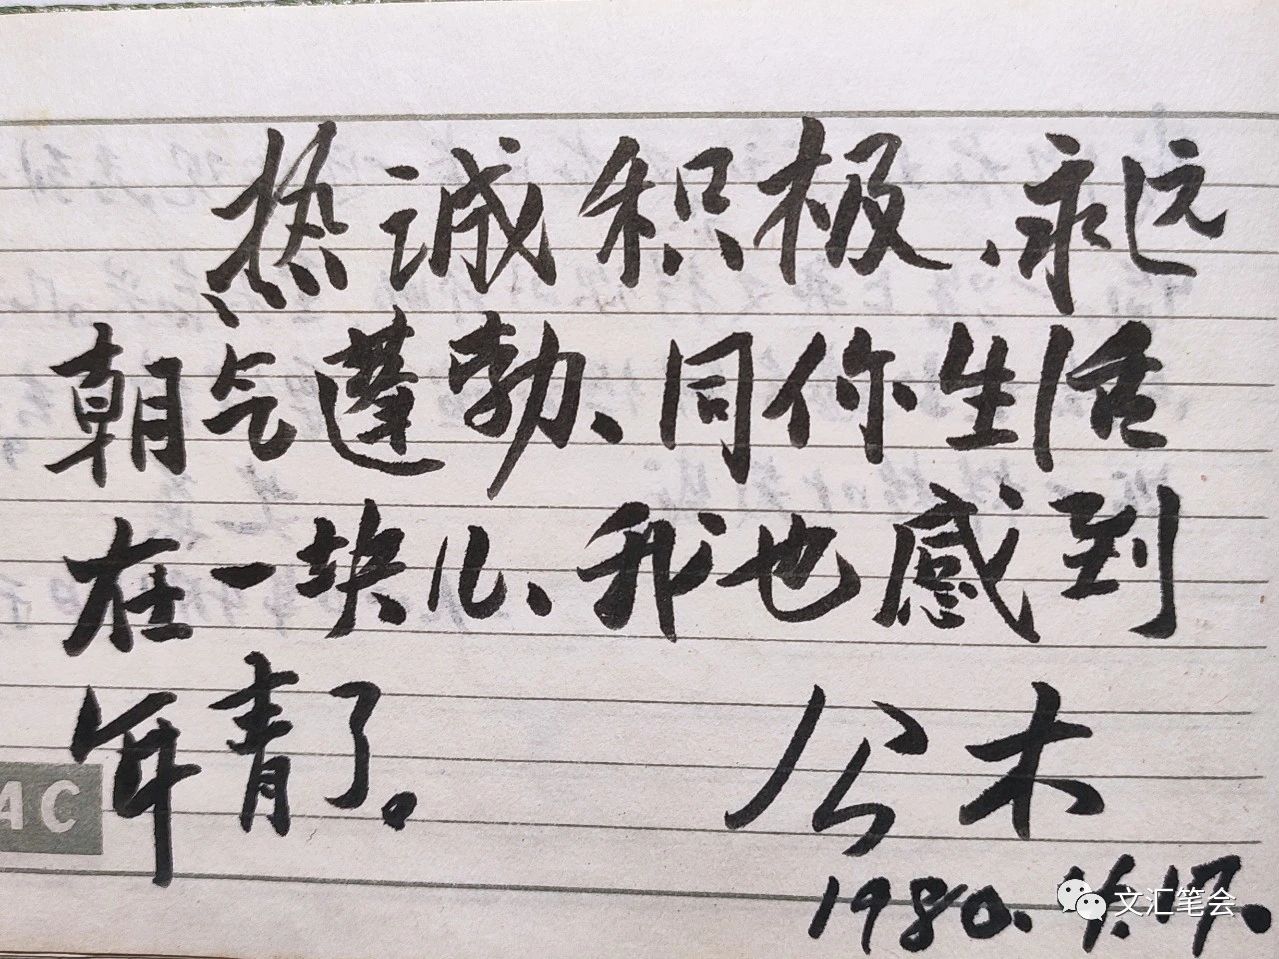 热诚积极、永远
朝气蓬勃、同你生活
在一块儿、我也感到
年青了。
公木
1980. 17.
AC
文汇笔会